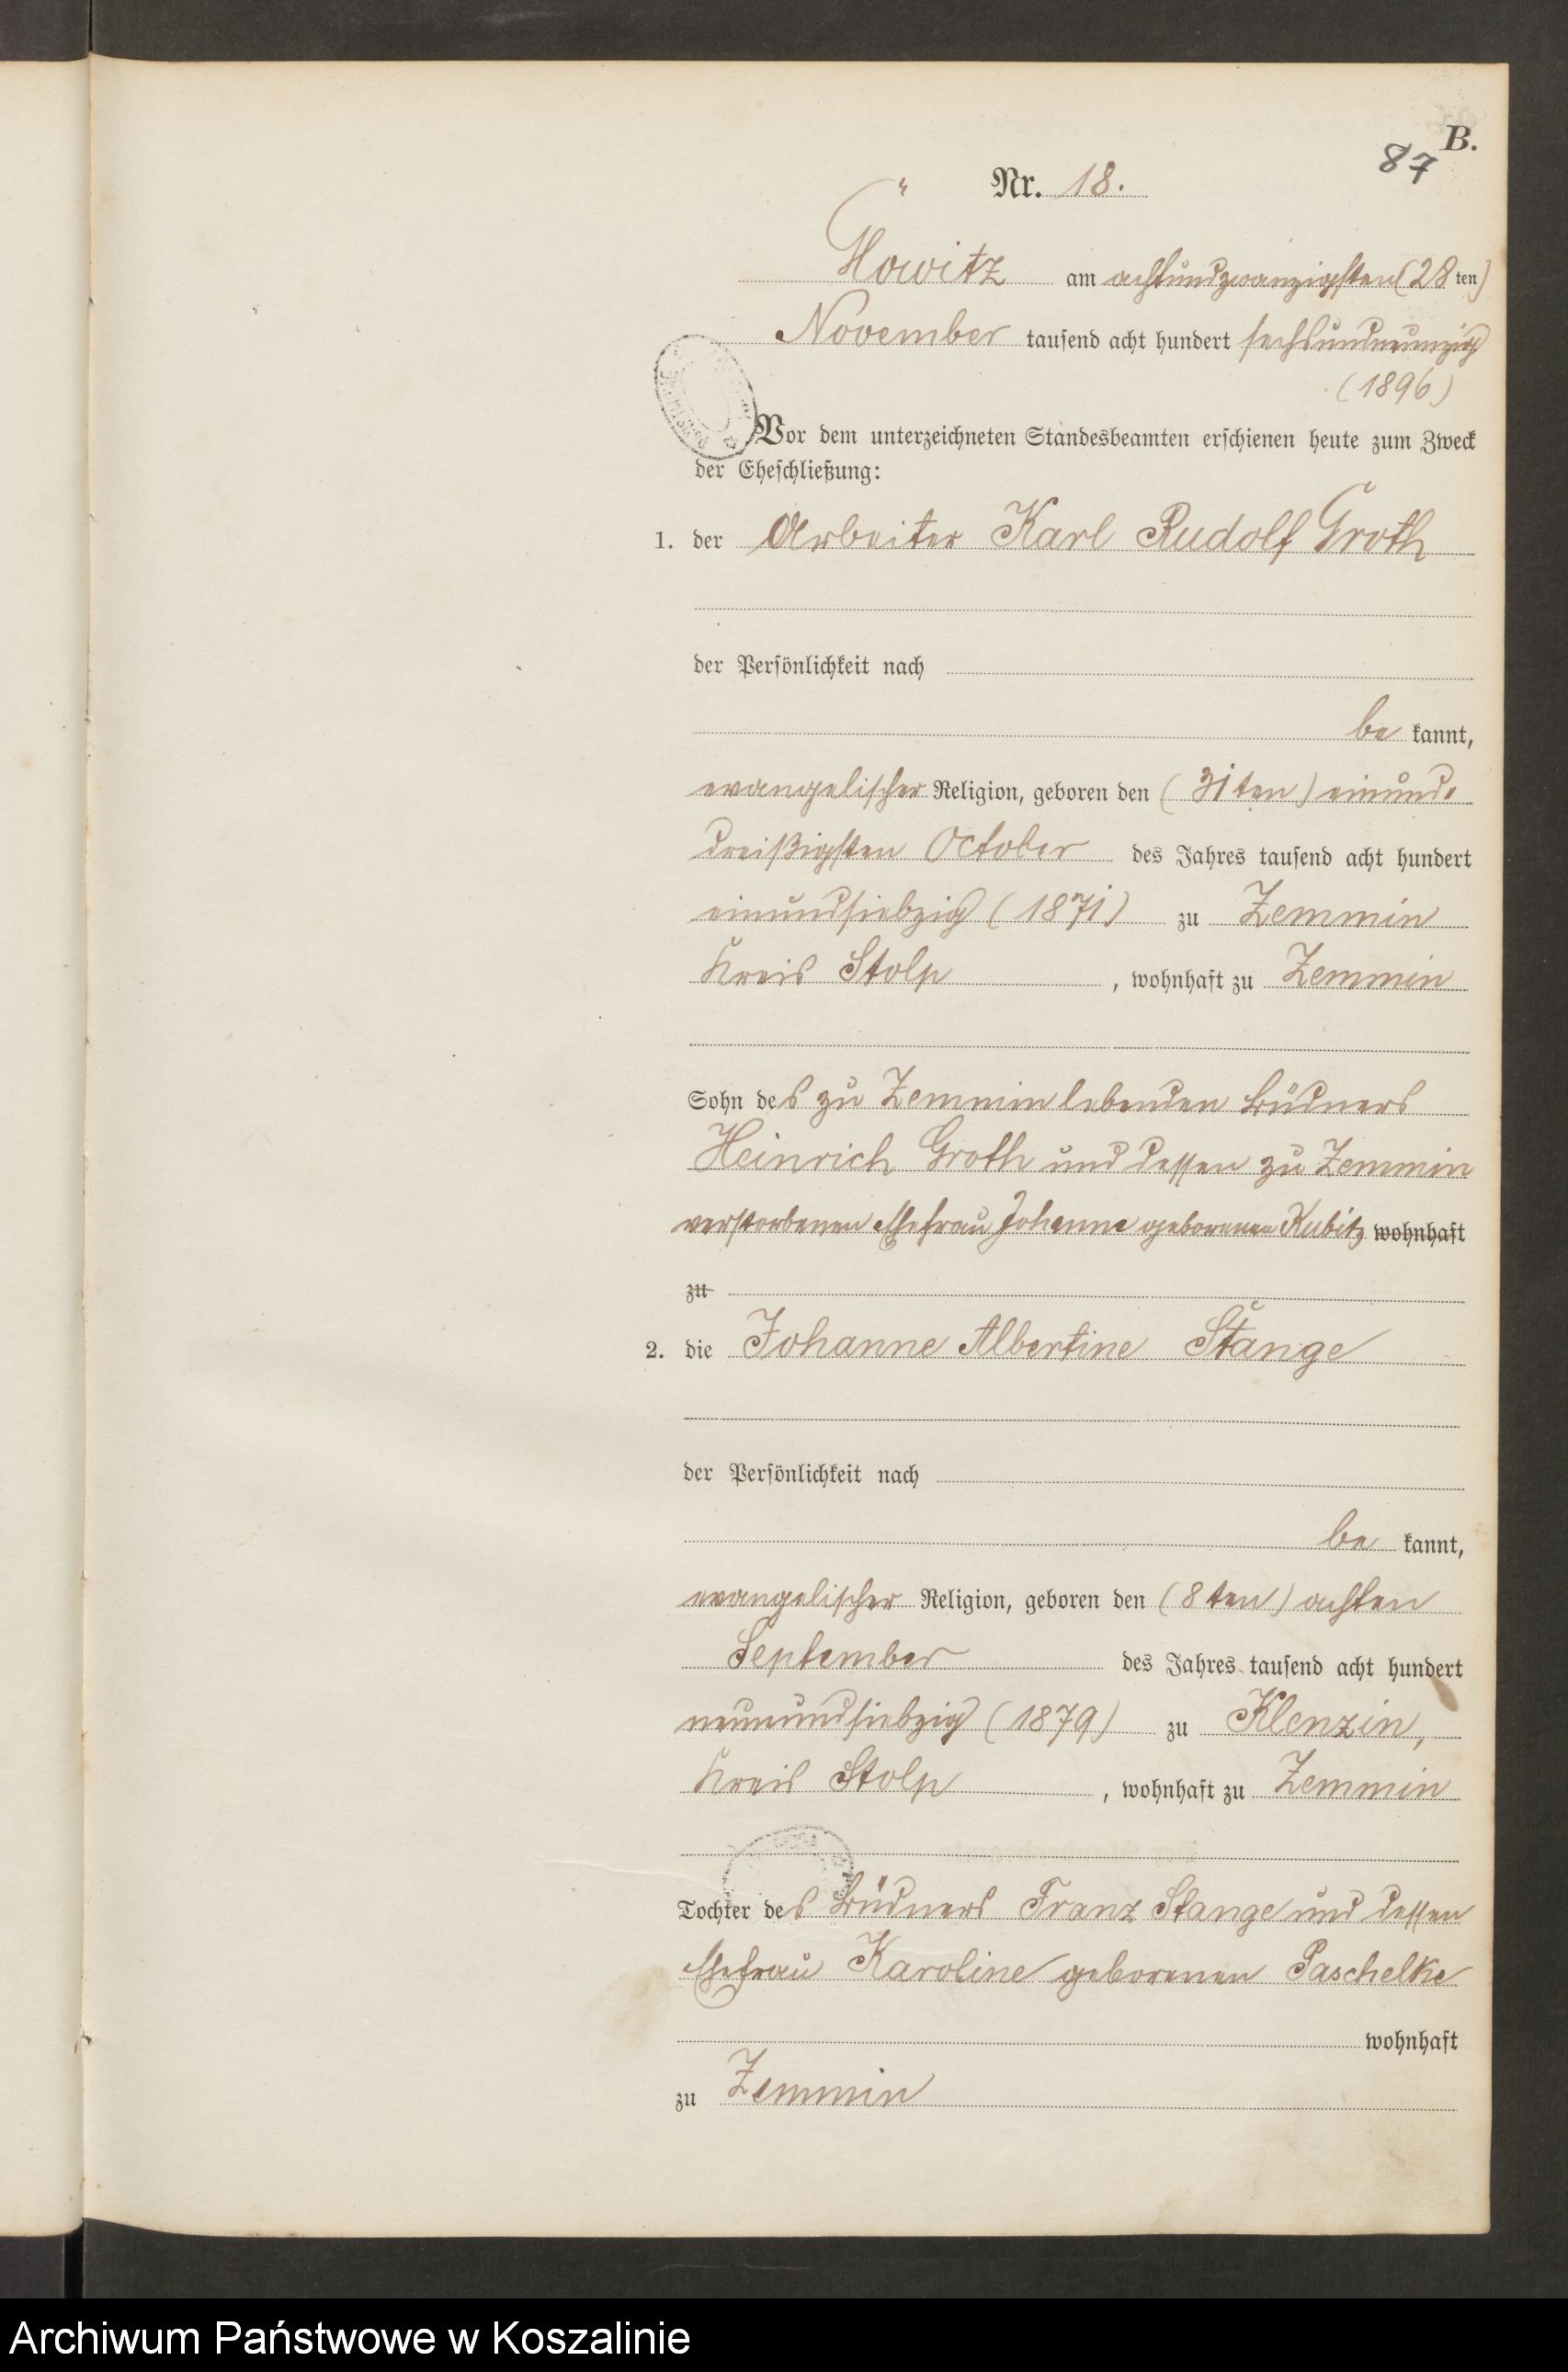 B.
87
Nr. 18.
Glowitz am achtundzwanzigsten (28 ten)
November tausend acht hundert sechsundneunzig
(1896)
Vor dem unterzeichneten Standesbeamten erschienen heute zum Zweck
der Eheschließung:
1. der Arbeiter Karl Rudolf Groth
der Persönlichkeit nach
be kannt,
evangelischer Religion, geboren den (31ten) einund-
dreißigsten October des Jahres tausend acht hundert
einundsiebzig (1871) zu Zemmin
Kreis Stolp, wohnhaft zu Zemmin
Sohn des zu Zemmin lebenden Büdners
Heinrich Groth und dessen zu Zemmin
verstorbenen Ehefrau Johanne geborenen Kubitz wohnhaft
zu
2. die Johanne Albertine Stange
der Persönlichkeit nach
be kannt,
evangelischer Religion, geboren den (8ten) achten
September des Jahres tausend acht hundert
neunundsiebzig (1879) zu Klenzin,
Kreis Stolp, wohnhaft zu Zemmin
Tochter des Büdners Franz Stange und dessen
Ehefrau Karoline geborenen Paschelke
wohnhaft
zu Zemmin
Archiwum Państwowe w Koszalinie